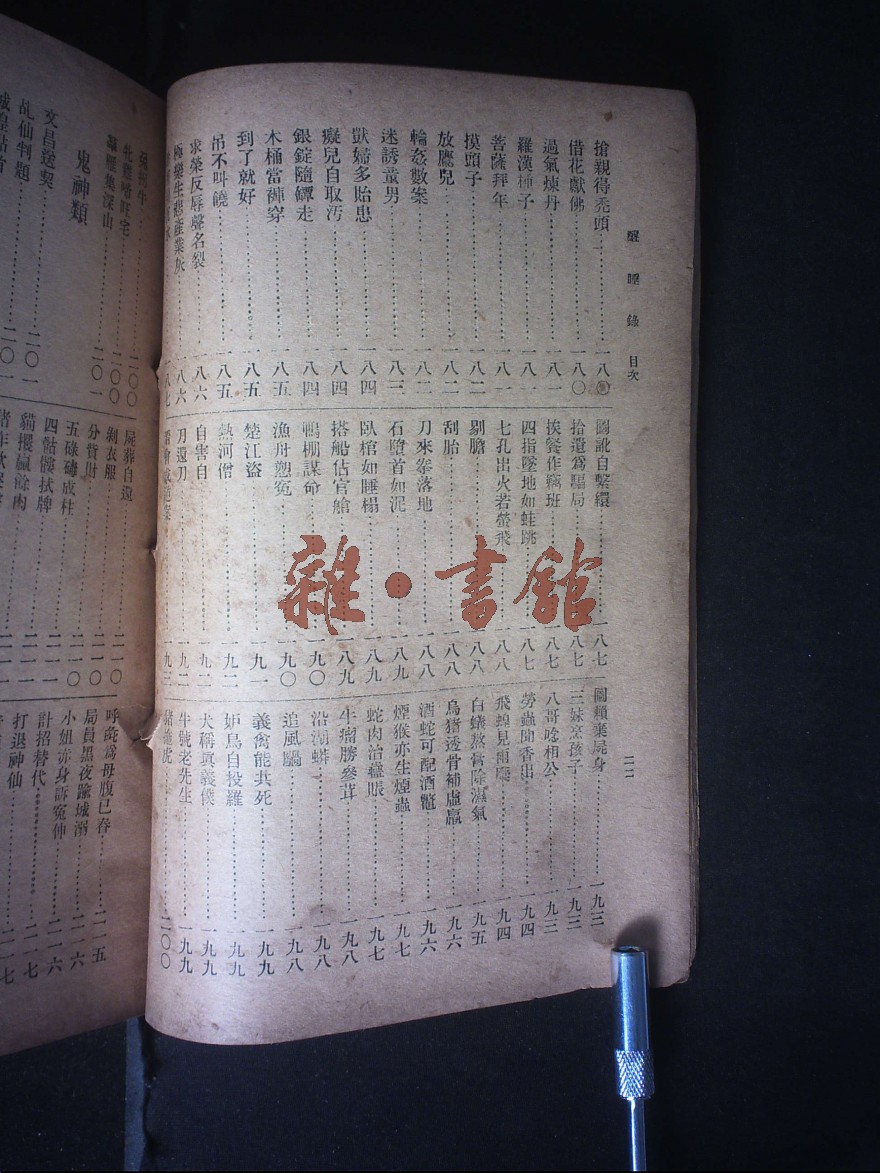 醒睡錄 目次
搶親得禿頭……一八〇
借花獻佛……一八〇
過氣煉丹……一八一
羅漢種子……一八一
菩薩拜年……一八一
摸頭子……一八二
放鷹兒……一八二
輪姦數案……一八三
迷誘童男……一八四
獃婦多貽患……一八四
癡兒自取污……一八四
銀錠隨罈走……一八四
木桶當褲穿……一八五
到了就好……一八五
吊不叫饒……一八五
求榮反辱聲名裂……一八六
極樂生悲產業灰……一八六
圖訛自繫繯……一八七
拾遺爲騙局……一八七
挨餐作竊班……一八七
四指墜地如蛙跳……一八七
七孔出火若螢飛……一八八
剔膽……一八八
刮胎……一八八
刀來拳落地……一八八
石墮首如泥……一八九
臥棺如睡榻……一八九
搭船佔官艙……一八九
鴨棚謀命……一九〇
漁舟愬冤……一九〇
楚江盜……一九一
熱河僧……一九二
自害自……一九二
刀還刀……一九二
一九三
圖賴棄屍身……一九三
三妹烹孩子……一九三
八哥唸相公……一九三
勞蟲聞香出……一九四
飛蝗見雨斃……一九四
白蟻熬膏除濕氣……一九五
烏猪透骨補虛羸……一九六
酒蛇可配酒鼈……一九六
煙猴亦生煙蟲……一九七
蛇肉治蠱脹……一九七
牛㾾勝參茸……一九八
沿湖蟒……一九八
追風騧……一九八
義禽能共死……一九九
妒鳥自投羅……一九九
犬稱眞義僕……一九九
牛號老先生……一九九
二〇〇
二二
雜·書館
牛……二〇〇
旺宅……二〇〇
集深山……二〇一
鬼神類
文昌送契……二〇一
乩仙判題……二〇一
屍葬自還……二一〇
剝衣服……二一〇
分背財……二一〇
五碌磚成柱……二一〇
四骷髏拭牌……二一一
貓攫鹹餘肉……二一一
呼㲉爲母腹已吞……二一五
局員黑夜踰城溺……二一六
小姐亦身訴冤伸……二一六
計招替代……二一六
打退神仙……二一七